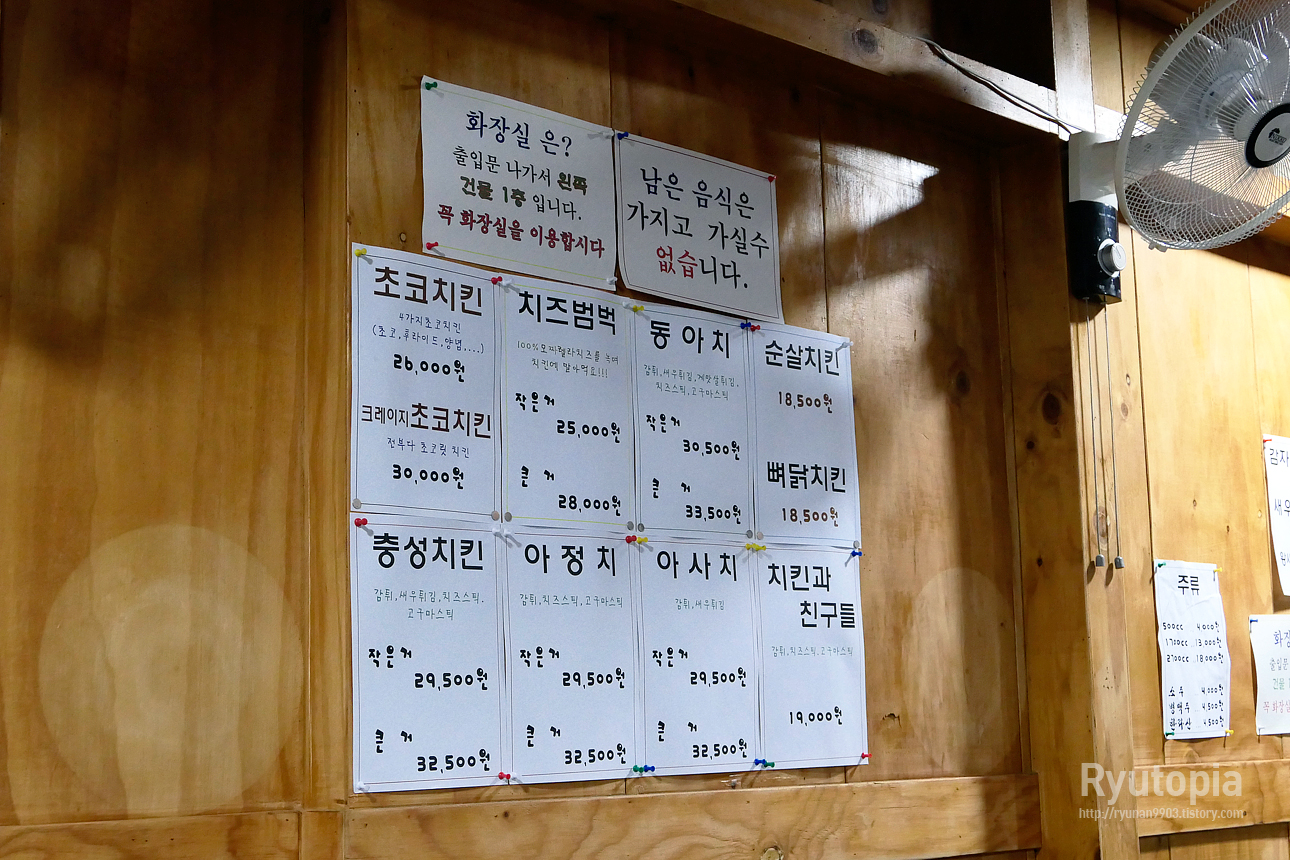 화장실 은?
출입문 나가서 왼쪽
건물 1층 입니다.
꼭 화장실을 이용합시다
남은 음식은
가지고 가실수
없습니다.
초코치킨
4가지초코치킨
(초코,후라이드,양념,...)
26,000원
크레이지초코치킨
전부다 초코릿 치킨
30,000원
치즈범벅
100%모짜렐라치즈를 녹여
치킨에 말아먹요!!!
작은거
25,000원
큰 거
28,000원
동아치
감튀,새우튀김,게맛살튀김,
치즈스틱,고구마스틱
작은거
30,500원
큰 거
33,500원
순살치킨
18,500원
뼈닭치킨
18,500원
충성치킨
감튀,새우튀김,치즈스틱.
고구마스틱
작은거
29,500원
큰 거
32,500원
아정치
감튀,치즈스틱,고구마스틱
작은거
29,500원
큰 거
32,500원
아사치
감튀,새우튀김
작은거
29,500원
큰 거
32,500원
치킨과
친구들
감튀,치즈스틱.고구마스틱
19,000원
감자
새우
주류
500cc 4,000원
1700cc 13,000원
2700cc 18,000원
소주 4,000원
백세주 4,500원
한라산 4,500원
화장
출입문
건물 1
꼭 화장실
Ryutopia
http://ryunan9903.tistory.com